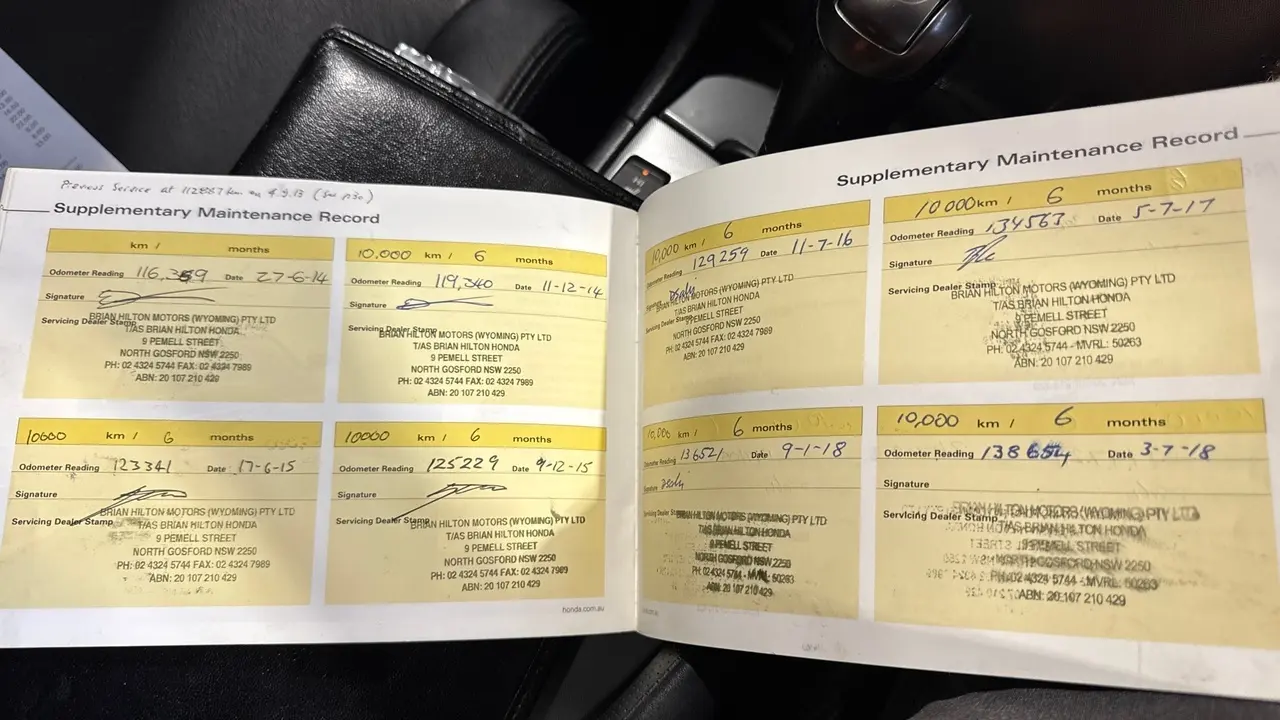 Previous Service at 112887 km on 4.9.13 (See p30)
Supplementary Maintenance Record
km / months
Odometer Reading 116,359 Date 27-6-14
Signature
Servicing Dealer Stamp
BRIAN HILTON MOTORS (WYOMING) PTY LTD
T/AS BRIAN HILTON HONDA
9 PEMELL STREET
NORTH GOSFORD NSW 2250
PH: 02 4324 5744 FAX: 02 4324 7989
ABN: 20 107 210 429
10,000 km / 6 months
Odometer Reading 119,340 Date 11-12-14
Signature
Servicing Dealer Stamp
BRIAN HILTON MOTORS (WYOMING) PTY LTD
T/AS BRIAN HILTON HONDA
9 PEMELL STREET
NORTH GOSFORD NSW 2250
PH: 02 4324 5744 FAX: 02 4324 7989
ABN: 20 107 210 429
10000 km / 6 months
Odometer Reading 123341 Date 17-6-15
Signature
Servicing Dealer Stamp
BRIAN HILTON MOTORS (WYOMING) PTY LTD
T/AS BRIAN HILTON HONDA
9 PEMELL STREET
NORTH GOSFORD NSW 2250
PH: 02 4324 5744 FAX: 02 4324 7989
ABN: 20 107 210 429
10000 km / 6 months
Odometer Reading 125229 Date 9-12-15
Signature
Servicing Dealer Stamp
BRIAN HILTON MOTORS (WYOMING) PTY LTD
T/AS BRIAN HILTON HONDA
9 PEMELL STREET
NORTH GOSFORD NSW 2250
PH: 02 4324 5744 FAX: 02 4324 7989
ABN: 20 107 210 429
honda.com.au
Supplementary Maintenance Record
10,000 km / 6 months
Odometer Reading 129259 Date 11-7-16
Signature
Servicing Dealer Stamp
BRIAN HILTON MOTORS (WYOMING) PTY LTD
T/AS BRIAN HILTON HONDA
9 PEMELL STREET
NORTH GOSFORD NSW 2250
PH: 02 4324 5744 FAX: 02 4324 7989
ABN: 20 107 210 429
10000 km / 6 months
Odometer Reading 134563 Date 5-7-17
Signature
Servicing Dealer Stamp
BRIAN HILTON MOTORS (WYOMING) PTY LTD
T/AS BRIAN HILTON HONDA
9 PEMELL STREET
NORTH GOSFORD NSW 2250
PH: 02 4324 5744 - MVRL: 50263
ABN: 20 107 210 429
10,000 km / 6 months
Odometer Reading 136521 Date 9-1-18
Signature
Servicing Dealer Stamp
BRIAN HILTON MOTORS (WYOMING) PTY LTD
T/AS BRIAN HILTON HONDA
9 PEMELL STREET
NORTH GOSFORD NSW 2250
PH: 02 4324 5744 - MVRL: 50263
ABN: 20 107 210 429
10,000 km / 6 months
Odometer Reading 138654 Date 3-7-18
Signature
Servicing Dealer Stamp
BRIAN HILTON MOTORS (WYOMING) PTY LTD
T/AS BRIAN HILTON HONDA
9 PEMELL STREET
NORTH GOSFORD NSW 2250
PH: 02 4324 5744 - MVRL: 50263
ABN: 20 107 210 429